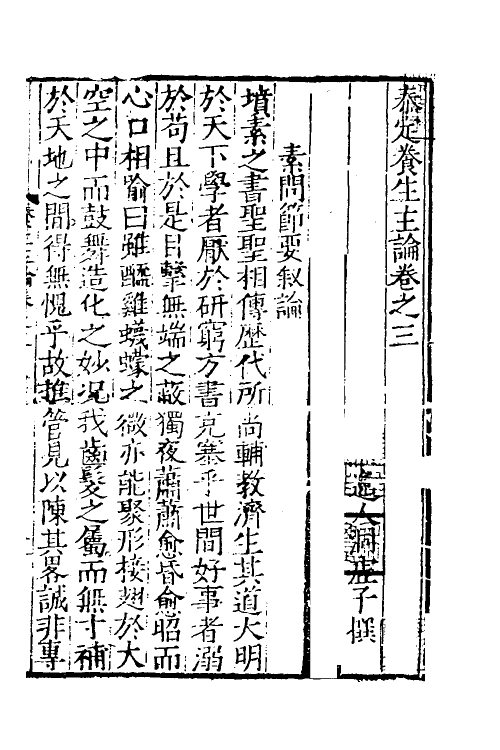 泰定養生主論卷之三
逸人洞虛子撰
素問節要叙論
墳素之書聖聖相傳歷代所尚輔教濟生其道大明
於天下學者厭於研窮方書充塞乎世間好事者溺
於苟且於是目擊無端之蔽獨夜蕭蕭愈昏愈昭而
心口相喻曰雖醯雞蠛蠓之微亦能聚形接翅於大
空之中而鼓舞造化之妙况我齒髮之屬而無寸補
於天地之間得無愧乎故推管見以陳其畧誠非專